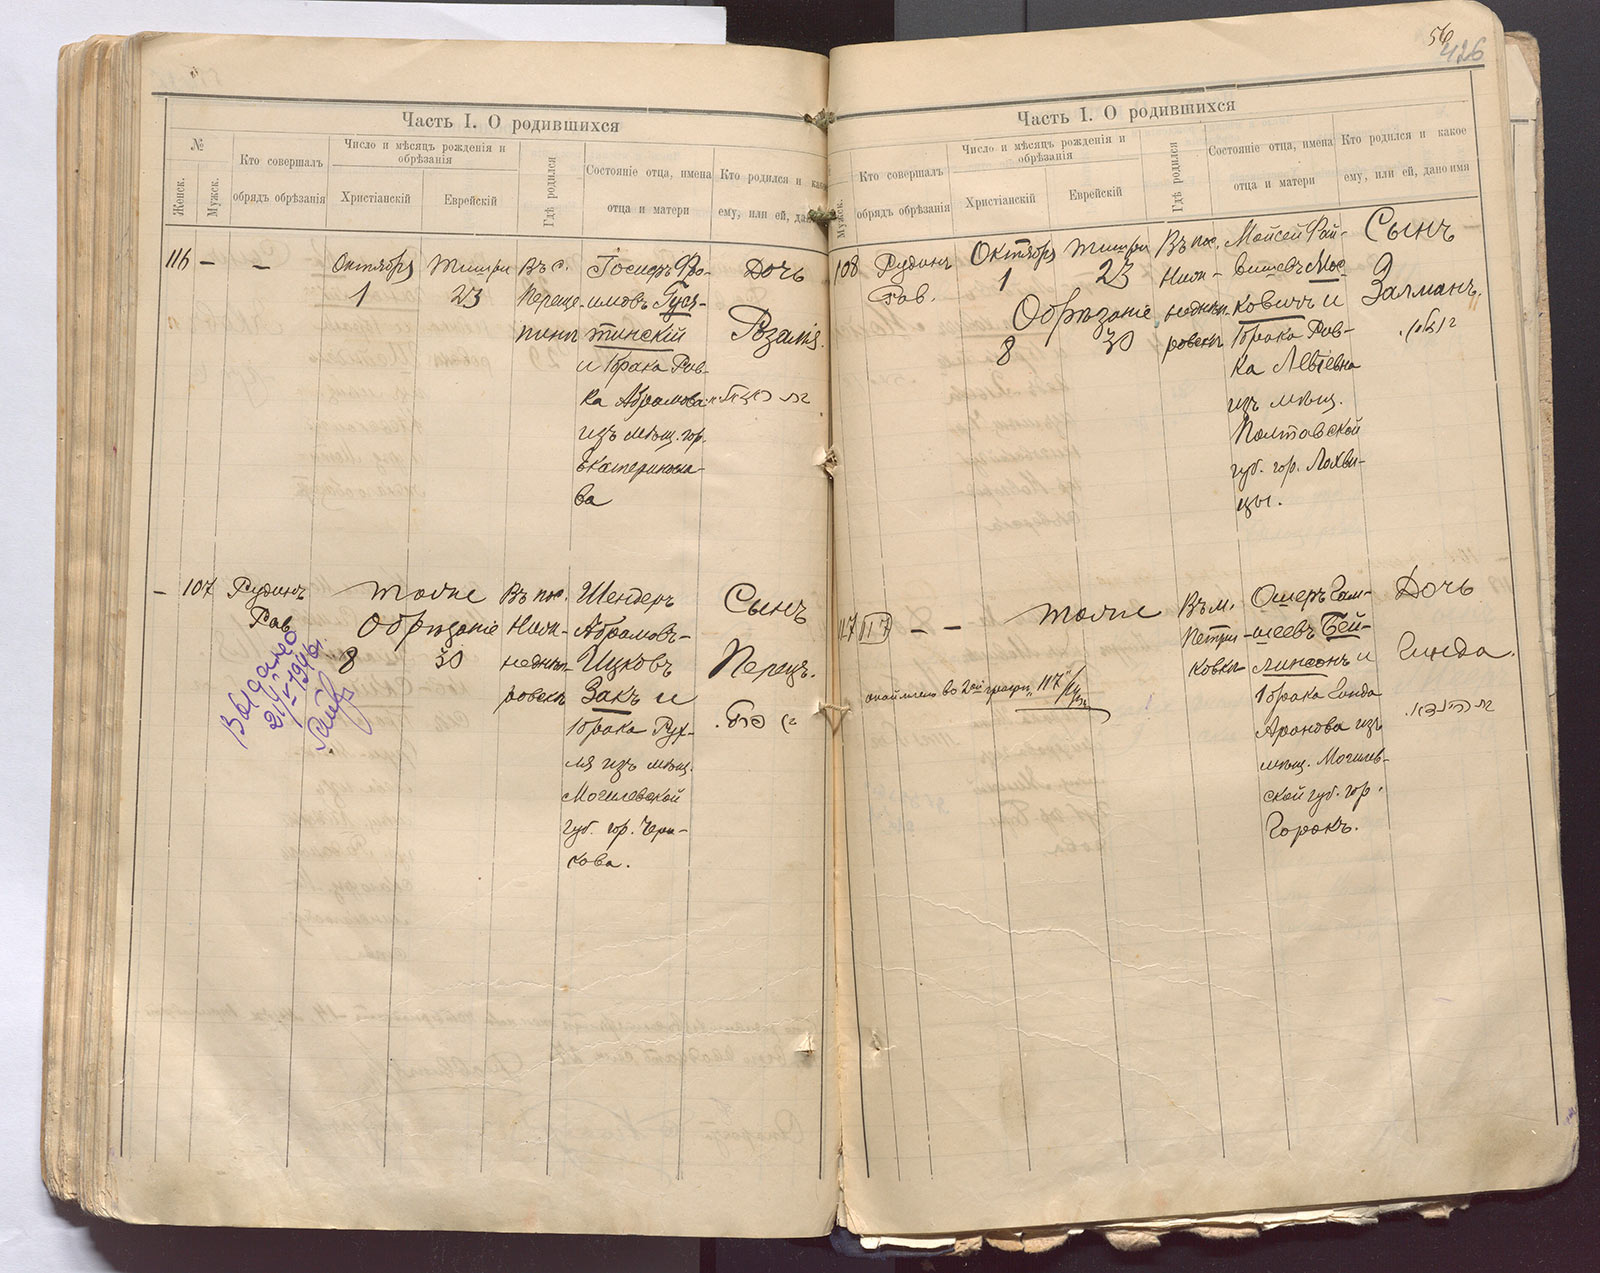 56
426
Часть I. О родившихся
№
Женск.
Мужск.
Кто совершалъ
обрядъ обрѣзанія
Число и мѣсяцъ рожденія и
обрѣзанія
Христіанскій
Еврейскій
Гдѣ родился
Состояніе отца, имена
отца и матери
Кто родился и како
ему, или ей, дано
116 - -
Октября
1
Тишри
23
Въ с.
Переще-
пино
Госиеръ
имовъ Гуся-
тинскій
и 1 брака Рив-
ка Абрамова
изъ мѣщ. гор.
Екатериносла-
ва
Дочь
Розалія.
- 107
Рудинъ
Рав.
Тоже
Обрѣзаніе
8
30
Въ пос.
Ниж-
неднѣп-
ровскъ
Шендеръ
Абрамовъ-
Ицковъ
Закъ и
1 брака Рух-
ля изъ мѣщ.
Могилевской
губ. гор. Чери-
кова.
Сынъ
Перецъ.
פרץ
Выдано
2/IV-1946г.
Часть I. О родившихся
Мужск.
Кто совершалъ
обрядъ обрѣзанія
Число и мѣсяцъ рожденія и
обрѣзанія
Христіанскій
Еврейскій
Гдѣ родился
Состояніе отца, имена
отца и матери
Кто родился и какое
ему, или ей, дано имя
108
Рудинъ
Рав.
Октября
1
Тишри
23
Обрѣзаніе
8
30
Въ пос.
Ниж-
неднѣп-
ровскъ
Мойсей Фай-
вишевъ Мос-
ковичъ и
1 брака Рив-
ка Лейбовна
изъ мѣщ.
Полтавской
губ. гор. Лохви-
цы.
Сынъ
Залманъ.
117 117 - -
Тоже
во 2ой графѣ "117"
Въ м.
Петри-
ковкѣ
Ошеръ Гам-
шеевъ Бей-
линсонъ и
1 брака Гинда
Аронова изъ
мѣщ. Могилев-
ской губ. гор.
Горокъ.
Дочь
Гинда.
הינדא